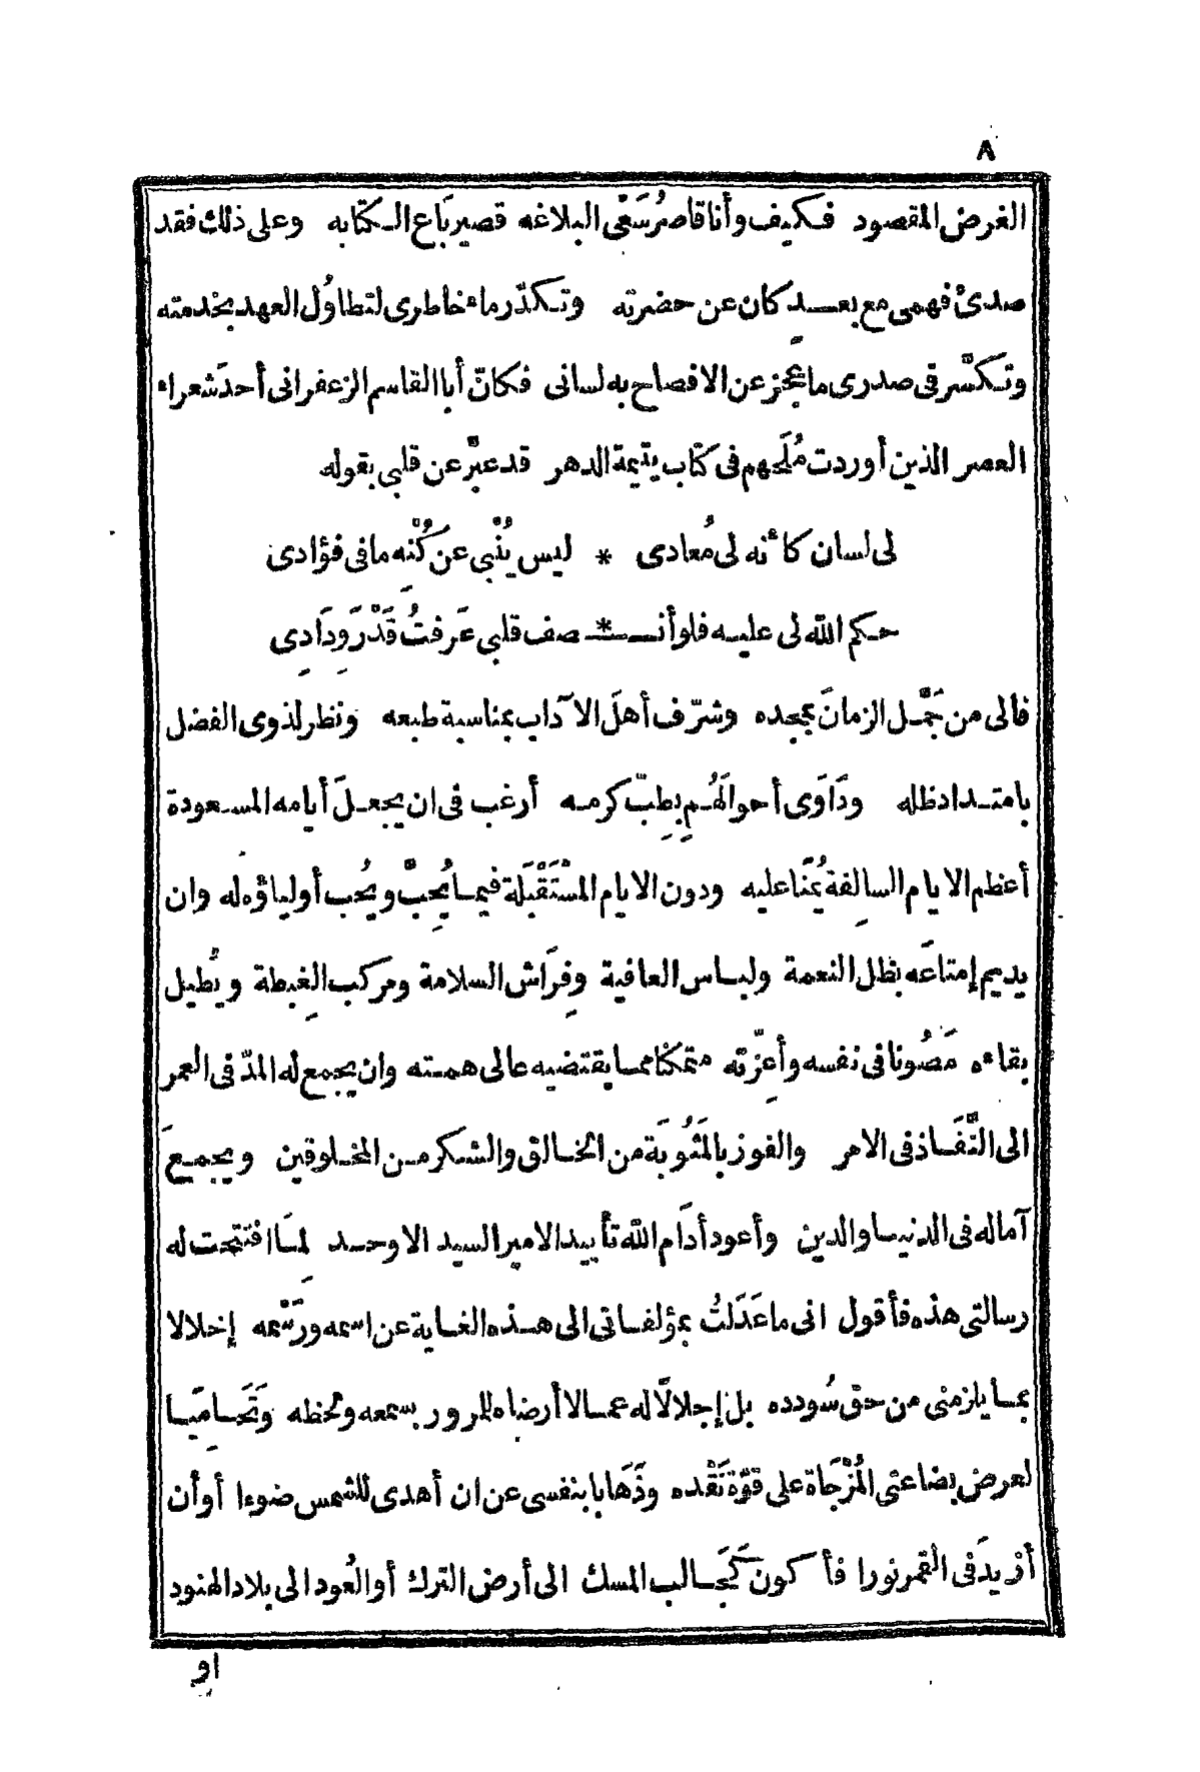 ٨
الغرض المقصود فكيف وأنا قاصرُ سَعْى البلاغه قصير بَاع الكتابه وعلى ذلك فقد
صدئ فهمى مع بعدٍ كان عن حضرته وتكدّر ماء خاطرى لتطاوُل العهد بخدمته
وتكسّر فى صدرى ما عجز عن الافصاح به لسانى فكانّ أبا القاسم الزعفرانى أحدَ شعراء
العصر الذين أوردت مُلَحهم فى كتاب يتيمة الدهر قد عبّر عن قلبى بقوله
لى لسان كأنه لى مُعادى * ليس يُنْبِى عن كُنْه ما فى فؤادى
حكم الله لى عليه فلو أنـ * صف قلبى عَرفتُ قَدْرَ وِدَادِى
فالى من جَمَّل الزمانَ بمجده وشرّف أهلَ الآداب بمناسبة طبعه ونظر لذوى الفضل
بامتداد ظله ودَاوَى أحوالَهُم بِطِبّ كرمه أرغب فى ان يجعلَ أيامه المسعودة
أعظم الايام السالِفة يُمْنًا عليه ودون الايام المسْتَقْبَلة فيما يُحِبّ ويُحب أولياؤه له وان
يديم إمتاعَه بظل النعمة ولباس العافية وفِرَاش السلامة ومركب الغِبطة ويُطيل
بقاءه مَصُونا فى نفسه وأعِزّته متمكنا مما يقتضيه عالى همته وان يجمع له المدّ فى العمر
الى النَّفَاذ فى الامر والفوز بالمَثُوبَة من الخالق والشكر من المخلوقين ويجميعَ
آماله فى الدنيا والدين وأعود أدَام الله تأييد الامير السيد الاوحد لِمَا افتتحت له
رسالتى هذه فأقول انى ما عَدَلتُ بمؤلفاتى الى هذه الغاية عن اسمه ورَسْمه إخلالا
بما يلزمنى من حق سُودده بل إجلالًا له عما لا أرضاه للمرور بسمعه ولحظه وَتَحَامِيًا
لعرض بضاعتى المُزْجَاة على قوّة نَقْده وذَهَابا بنفسى عن ان أهدى للشمس ضوءا أو أن
أزيدَ فى القمر نورا فأكون كَجَالب المسك الى أرض الترك أو العُود الى بلاد الهنود
او